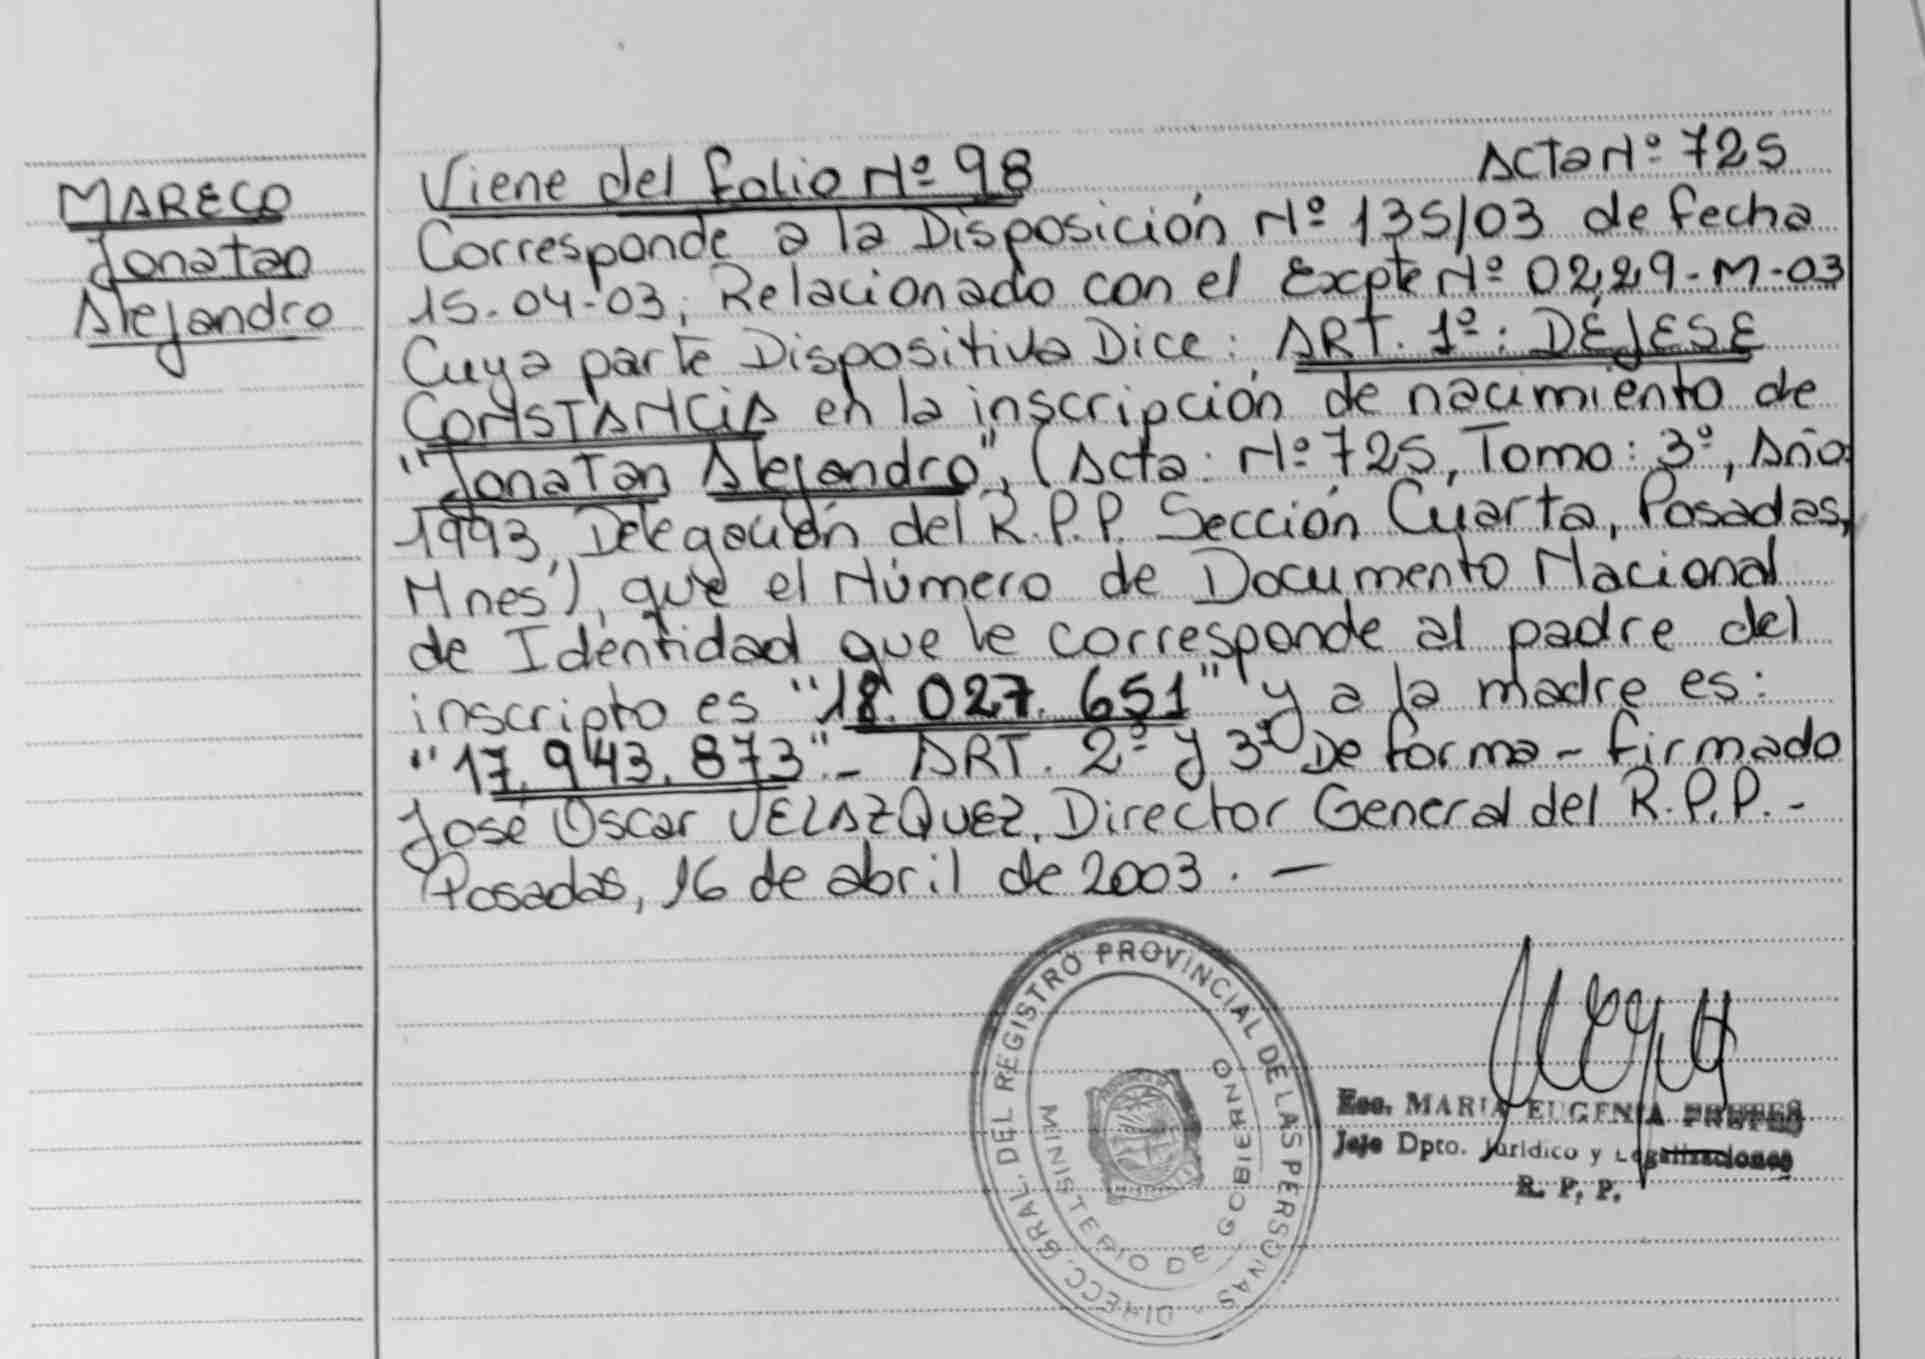 MARECO
Jonatan
Alejandro
Viene del folio Nº 98
Acta Nº 725
Corresponde a la Disposición Nº 135/03 de fecha
15-04-03; Relacionado con el Expte Nº 0229-M-03
Cuya parte Dispositiva Dice: ART. 1º: DÉJESE
CONSTANCIA en la inscripción de nacimiento de
"Jonatan Alejandro", (Acta: Nº 725, Tomo: 3º, Año:
1993, Delegación del R.P.P. Sección Cuarta, Posadas,
Mnes), que el Número de Documento Nacional
de Identidad que le corresponde al padre del
inscripto es "18.027.651" y a la madre es:
"17.943.873".- ART. 2º y 3º De forma - firmado
José Oscar VELAZQUEZ, Director General del R.P.P.-
Posadas, 16 de abril de 2003. —
DIRECC. GRAL. DEL REGISTRO PROVINCIAL DE LAS PERSONAS -
MINISTERIO DE GOBIERNO
Esc. MARIA EUGENIA PRETES
Jefe Dpto. Jurídico y Legalizaciones
R. P. P.